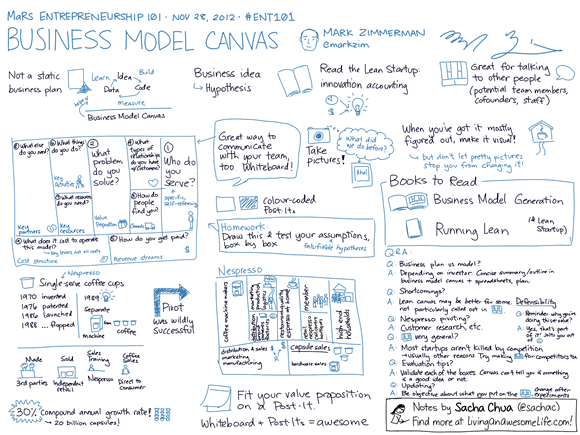 MaRS ENTREPRENEURSHIP 101 · NOV 28, 2012 · #ENT101
BUSINESS MODEL CANVAS
MARK ZIMMERMAN
@markzim
Not a static
business plan
Learn
Idea
Build
Data
Code
Measure
Business Model Canvas
Business idea
Hypothesis
Read the Lean Startup:
innovation accounting
Great for talking
to other people
(potential team members,
cofounders, staff)
What else
do you need?
What things
do you do?
Key
Activities
What
resources do
you need?
Key
partners
Key
resources
2
What
problem do
you
solve?
Value
Proposition
What
types of
relationships
do you have
w/customers?
How do
people
find you?
Channels
1
Who do
you
serve?
specific,
self-referencing
What does it cost to operate
this model?
Key levers, not all costs
Cost structure
How do you get paid?
Revenue streams
Great way to
communicate
with your team,
too. Whiteboard!
Take
pictures!
What did
we do before?
Aha!
When you've got it mostly
figured out, make it visual!
but don't let pretty pictures
stop you from changing it!
Colour-coded
Post Its
Homework:
Draw this & test your assumptions,
box by box
falsifiable hypotheses
Books to Read
Business Model Generation
Running Lean
(& Lean
Startup)
Nespresso
Single-serve coffee cups
1970 invented
1976 patented
1986 launched
1988 ... flopped
1989
Separate
machine
from
coffee
Pivot
was wildly
successful
Made
3rd parties
Sold
Independent
retail
Sales
Training
Nespresso
Coffee
Sales
Direct to
Consumer
30% Compound annual growth rate!
→ 20 billion capsules!
Nespresso
coffee machine makers
high-end
households
distribution & sales
marketing
manufacturing
capsule sales
hardware sales
Fit your value proposition
on a Post-It.
Whiteboard + Post Its = awesome
Q&A:
Q: Business plan vs model?
A: Depending on investor. Concise summary/outline in
business model canvas + spreadsheets, plan.
Q: Shortcomings?
A: Lean canvas may be better for some. Defensibility
not particularly called out in
Q: Nespresso pivoting?
A: Customer research, etc.
Q: Reminder why you're
doing those value?
A: Yes, that's part
of it!
Q: very general?
A: Most startups aren't killed by competition
→ usually other reasons. Try making for competitors too
Q: Evaluation tips?
A: Validate each of the boxes. Canvas can't tell you if something
is a good idea or not.
Q: Updating?
A: Be objective about what you put on the
change after
experiments
Notes by Sacha Chua (@sachac)
Find more at LivingAnAwesomeLife.com!